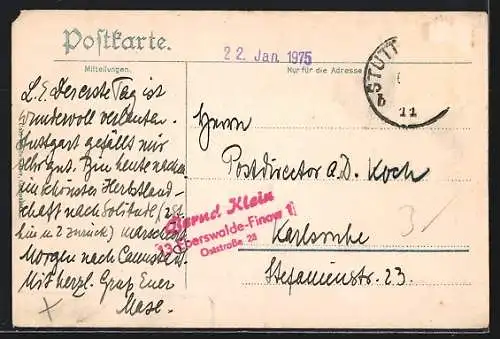 Postkarte.
22. Jan. 1975
Mitteilungen.
Nur für die Adresse
STUTT
b
11
L. E. Der erste Tag ist
wundervoll verlaufen.
Stuttgart gefällt mir
sehr gut. Bin heute nachm.
in schönster Herbstland-
schaft nach Solitude (2 St
hin u 2 zurück) marschiert
Morgen nach Cannstatt.
Mit herzl. Gruß Euer
Herrn
Postdirector A. D. Koch
Karlsruhe
Stefanienstr. 23.
Bernd Klein
13 Eberswalde-Finow 1
Oststraße 28
3/
X